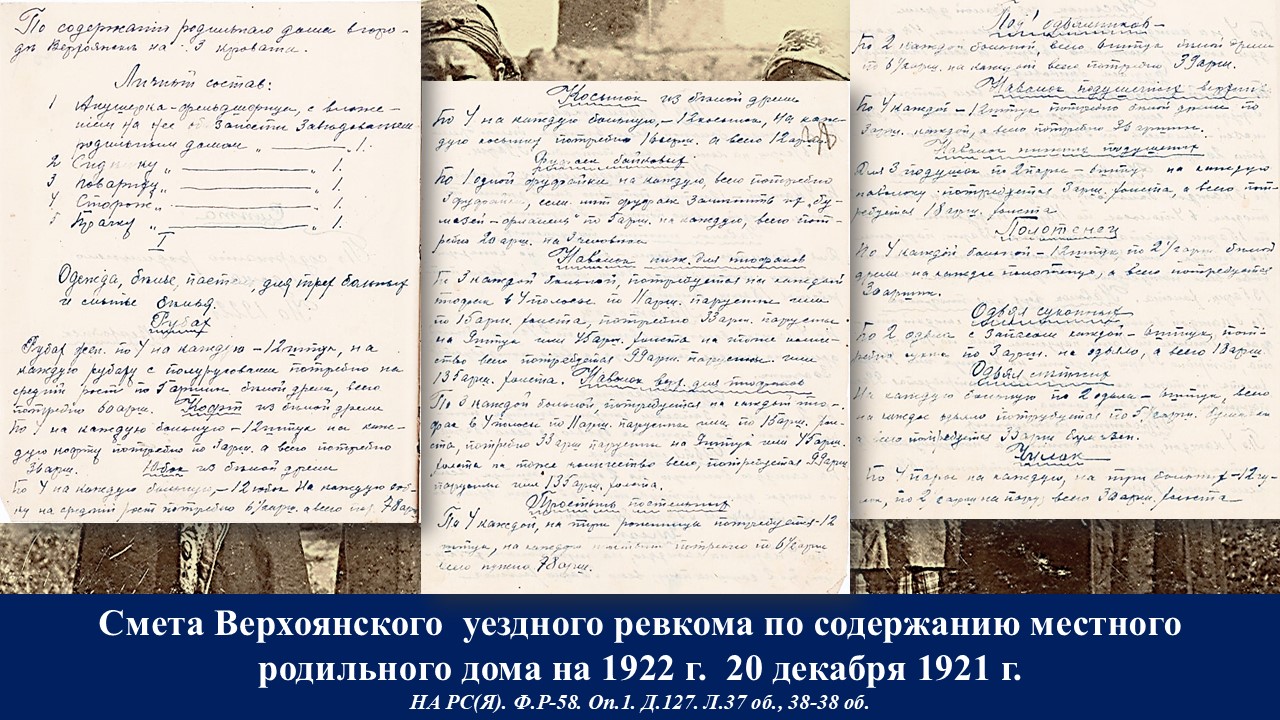 По содержанию родильного дома в горо-
де Верхоянск на 3 кровати.
Личный состав:
1 Акушерка-фельдшерица, с вложе-
нием на нее обязаности Заведования
родильным домом „ ——— „ 1.
2 Сиделку „ ——— „ 1.
3 Повариху „ ——— „ 1.
4 Сторож „ ——— „ 1.
5 Прачку „ ——— „ 1.
I
Одежда, белье, постель, для трех больных
и мытье белья.
Рубах
Рубах жен. по 4 на каждую – 12 штук, на
каждую рубаху с полурукавами потребно на
средний рост по 5 аршин белой дрели, всего
потребно 60 арш. Кофт из белой дрели
По 4 на каждую больную – 12 штук на каж-
дую кофту потребно по 3 арш. а всего потребно
36 арш. Юбок из белой дрели
По 4 на каждую больную, – 12 юбок На каждую юб-
ку на средний рост потребно 6½ арш. а всего 78 арш
Косынок из белой дрели
По 4 на каждую больную, – 12 косынок, на каж-
дую косынку потребно 1 арш. а всего 12 арш.
Фуфаек байковых
По 1 одной фуфайке на каждую, всего потребно
3 фуфайки, если нет фуфаек заменить их „бу-
мазей-фланец" по 5 арш. на каждую, всего пот-
ребно 20 арш. на 3 человека
Наволок ниж. для тюфяков
По 3 каждой больной, потребуется на каждый
тюфяк в 4 полосы по 11 арш. парусины или
по 15 арш. холста, потребно 33 арш. парусины
на 3 штук или 45 арш. холста на тоже коли-
чество всего потребуется 99 арш. парусины или
135 арш. холста. Наволок верх. для тюфяков
По 3 каждой больной, потребуется на каждый тю-
фяк в 4 полосы по 11 арш. парусины или по 15 арш. хол-
ста, потребно 33 арш парусины на 3 штук или 45 арш.
холста на тоже количество всего, потребуется 99 арш
парусины или 135 арш. холста.
Простынь постельных
По 4 каждой, на три роженицы потребуется 12
штук, на каждую простыню потребно по 6½ арш
всего нужно 78 арш.
Под'одеяльников
По 2 каждой больной, всего 6 штук белой дрели
по 6½ арш. на каждой всего потребно 39 арш.
Наволок подушечных верхних
По 4 каждой – 12 штук потребно белой дрели по
3 арш. каждой, а всего потребно 36 аршин.
Наволок нижних подушечных
Для 3 подушек по 2 пары – 6 штук на каждую
наволоку потребуется 3 арш. холста, а всего пот-
ребуется 18 арш. холста
Полотенец
По 4 каждой больной – 12 штук по 2½ арш. белой
дрели на каждое полотенце, а всего потребуется
30 аршин.
Одеял суконных
По 2 одеял Зимнем каждой – 6 штук, пот-
ребно сукна по 3 арш. на одеяло, а всего 18 арш.
Одеял летних
На каждую больную по 2 одеяла – 6 штук, всего
на каждое одеяло потребуется по 5½ арш.
а всего потребуется 33 арш.
Чулок
По 4 пары на каждую, на три больных – 12 чу-
лок, по 2 аршин на пару всего арш. холста
Смета Верхоянского уездного ревкома по содержанию местного
родильного дома на 1922 г. 20 декабря 1921 г.
НА РС(Я). Ф.Р-58. Оп.1. Д.127. Л.37 об., 38-38 об.